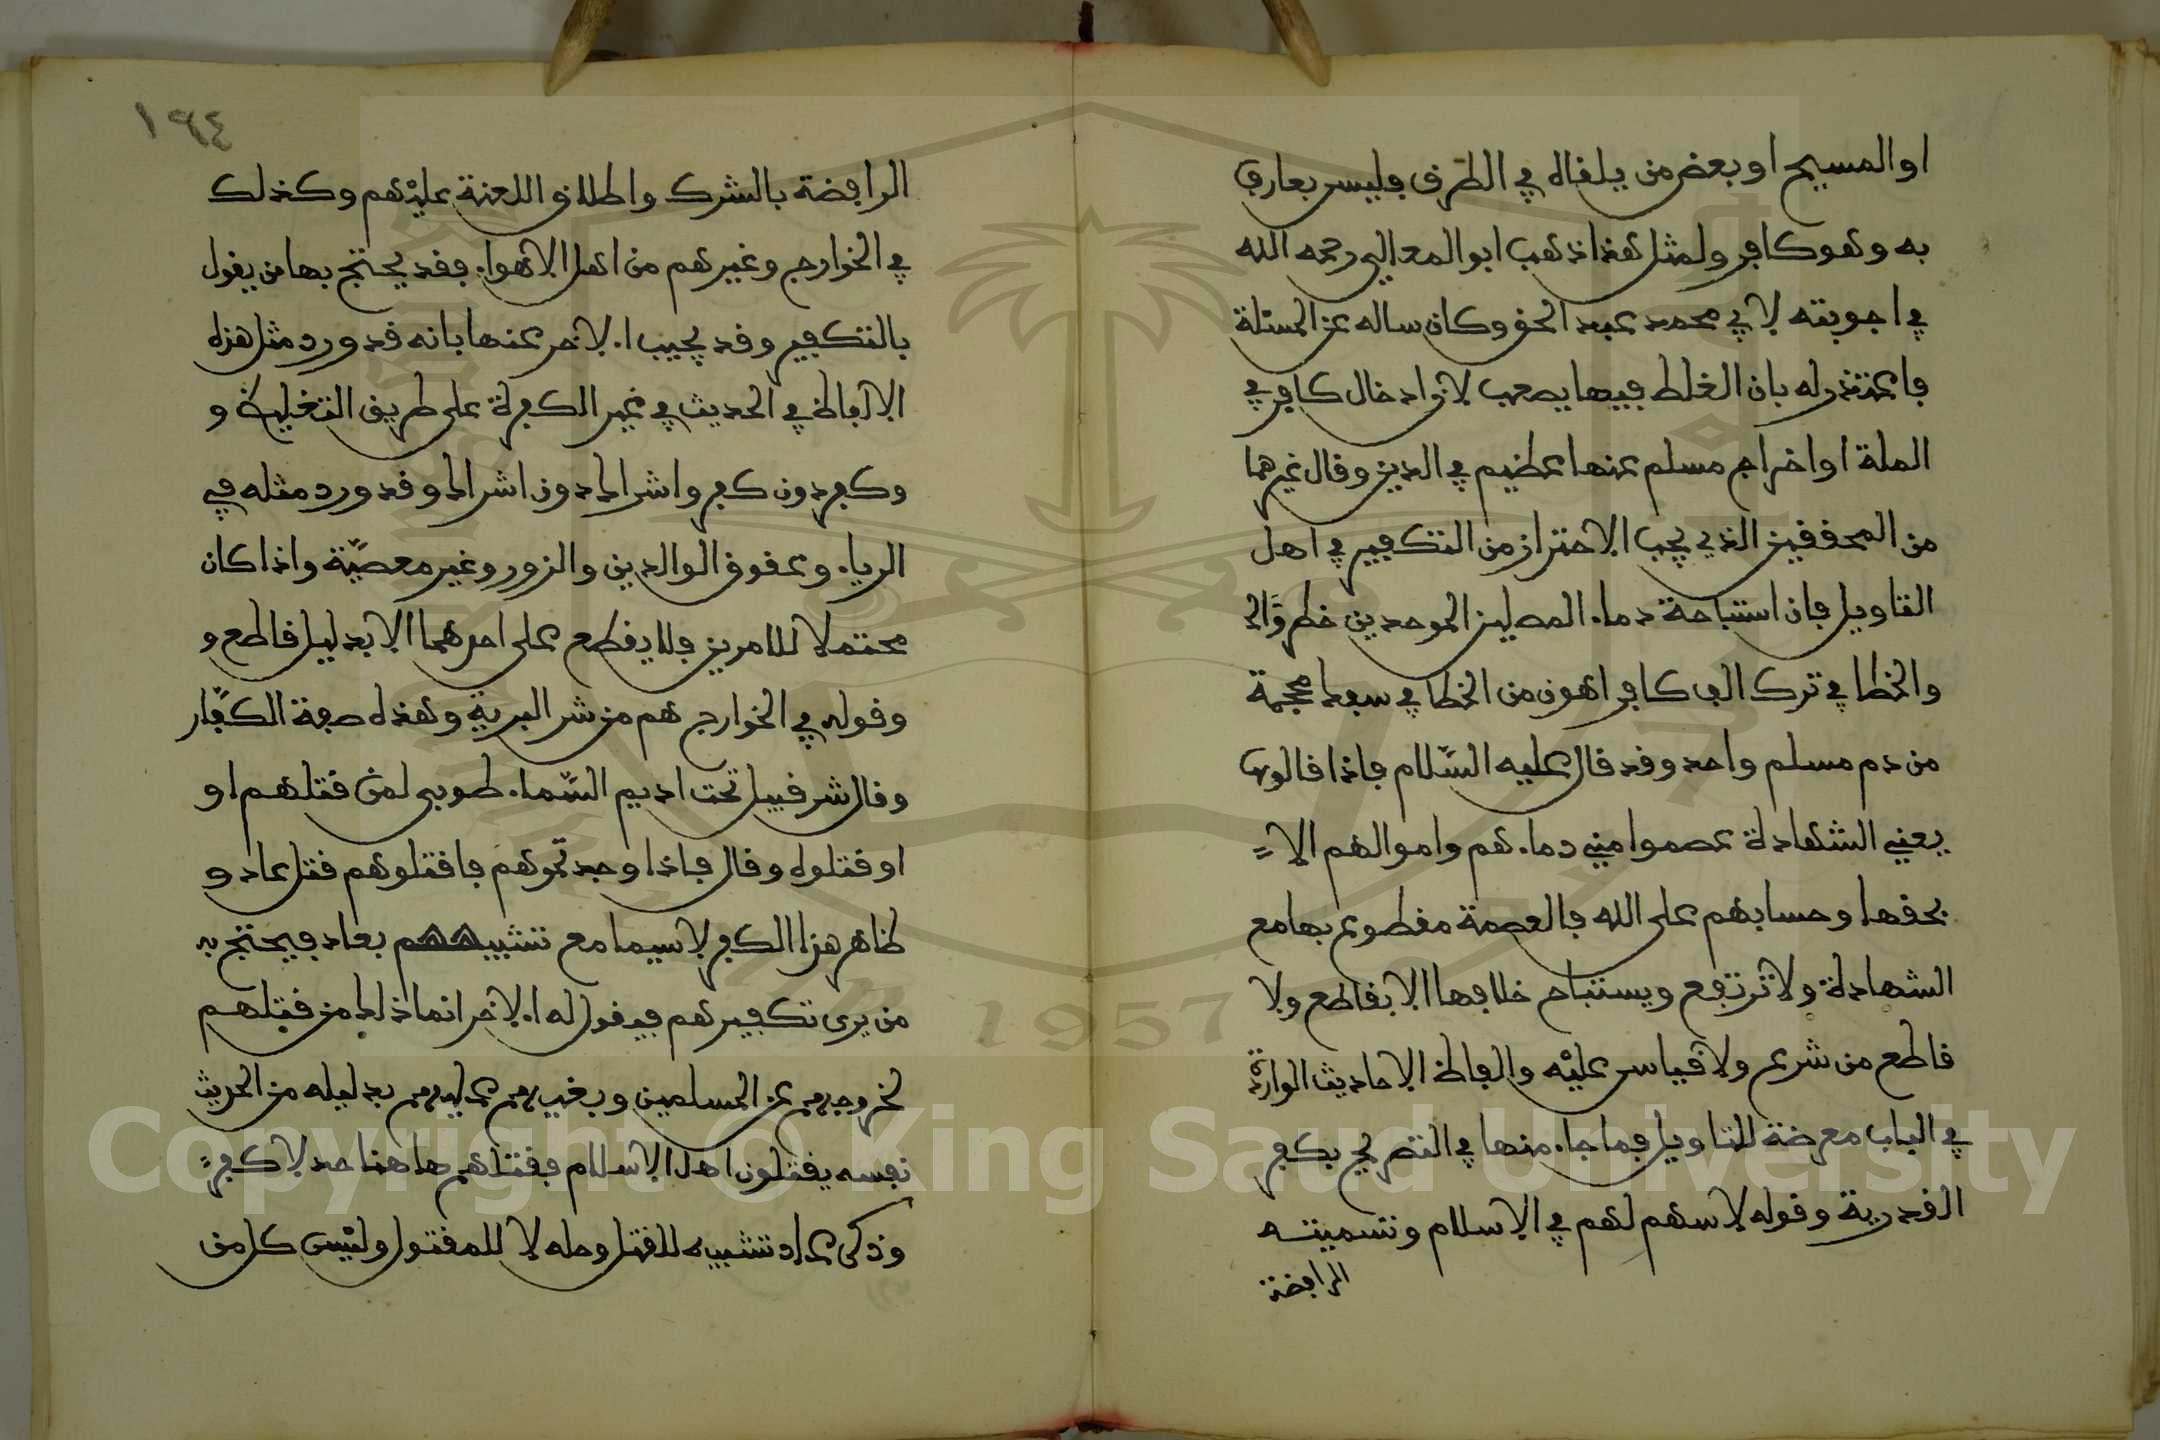 او المسيح او بعض من يلقاه في الطرق فليس بعارف
به وهو كافر ولمثل هذا ذهب ابو المعالي رحمه الله
في اجوبته لابي محمد عبد الحق وكان ساله عن المسئلة
فاعتذر له بان الغلط فيها يصعب لان ادخال كافر في
الملة او اخراج مسلم عنها عظيم في الدين وقال غيرهما
من المحققين الذي يجب الاحتراز من التكفير في اهل
التاويل فان استباحة دماء المصلين الموحدين خطر
والخطا في ترك الف كافر اهون من الخطا في سفك محجمة
من دم مسلم واحد وقد قال عليه السلام فاذا قالوها
يعني الشهادة عصموا مني دماءهم واموالهم الا
بحقها وحسابهم على الله فالعصمة مقطوع بها مع
الشهادة ولا ترتفع ويستباح خلافها الا بقاطع ولا
قاطع من شرع ولا قياس عليه والفاظ الاحاديث الواردة
في الباب معرضة للتاويل فما جاء منها في التصريح بكفر
القدرية وقوله لا سهم لهم في الاسلام وتسميته
الرافضة
١٩٤
الرافضة بالشرك واطلاق اللعنة عليهم وكذلك
في الخوارج وغيرهم من اهل الاهواء فقد يحتج بها من يقول
بالتكفير وقد يجيب الاخر عنها بانه قد ورد مثل هذه
الالفاظ في الحديث في غير الكفرة على طريق التغليظ و
وكفر دون كفر واشراك دون اشراك وقد ورد مثله في
الرياء وعقوق الوالدين والزور وغير معصية واذا كان
محتملا للامرين فلا يقطع على احدهما الا بدليل قاطع و
وقوله في الخوارج هم من شر البرية وهذه صفة الكفار
وقال شر قبيل تحت اديم السماء طوبى لمن قتلهم او
او قتلوه وقال فاذا وجدتموهم فاقتلوهم قتل عاد و
ظاهر هذا الكفر لا سيما مع تشبيههم بعاد فيحتج به
من يرى تكفيرهم فيقول له الاخر انما ذلك من قتلهم
لخروجهم عن المسلمين وبغيهم عليهم بدليله من الحديث
نفسه يقتلون اهل الاسلام فقتلهم هاهنا حد لا كفر
وذكر عاد تشبيه للقتل وحله لا للمقتول وليس كل من